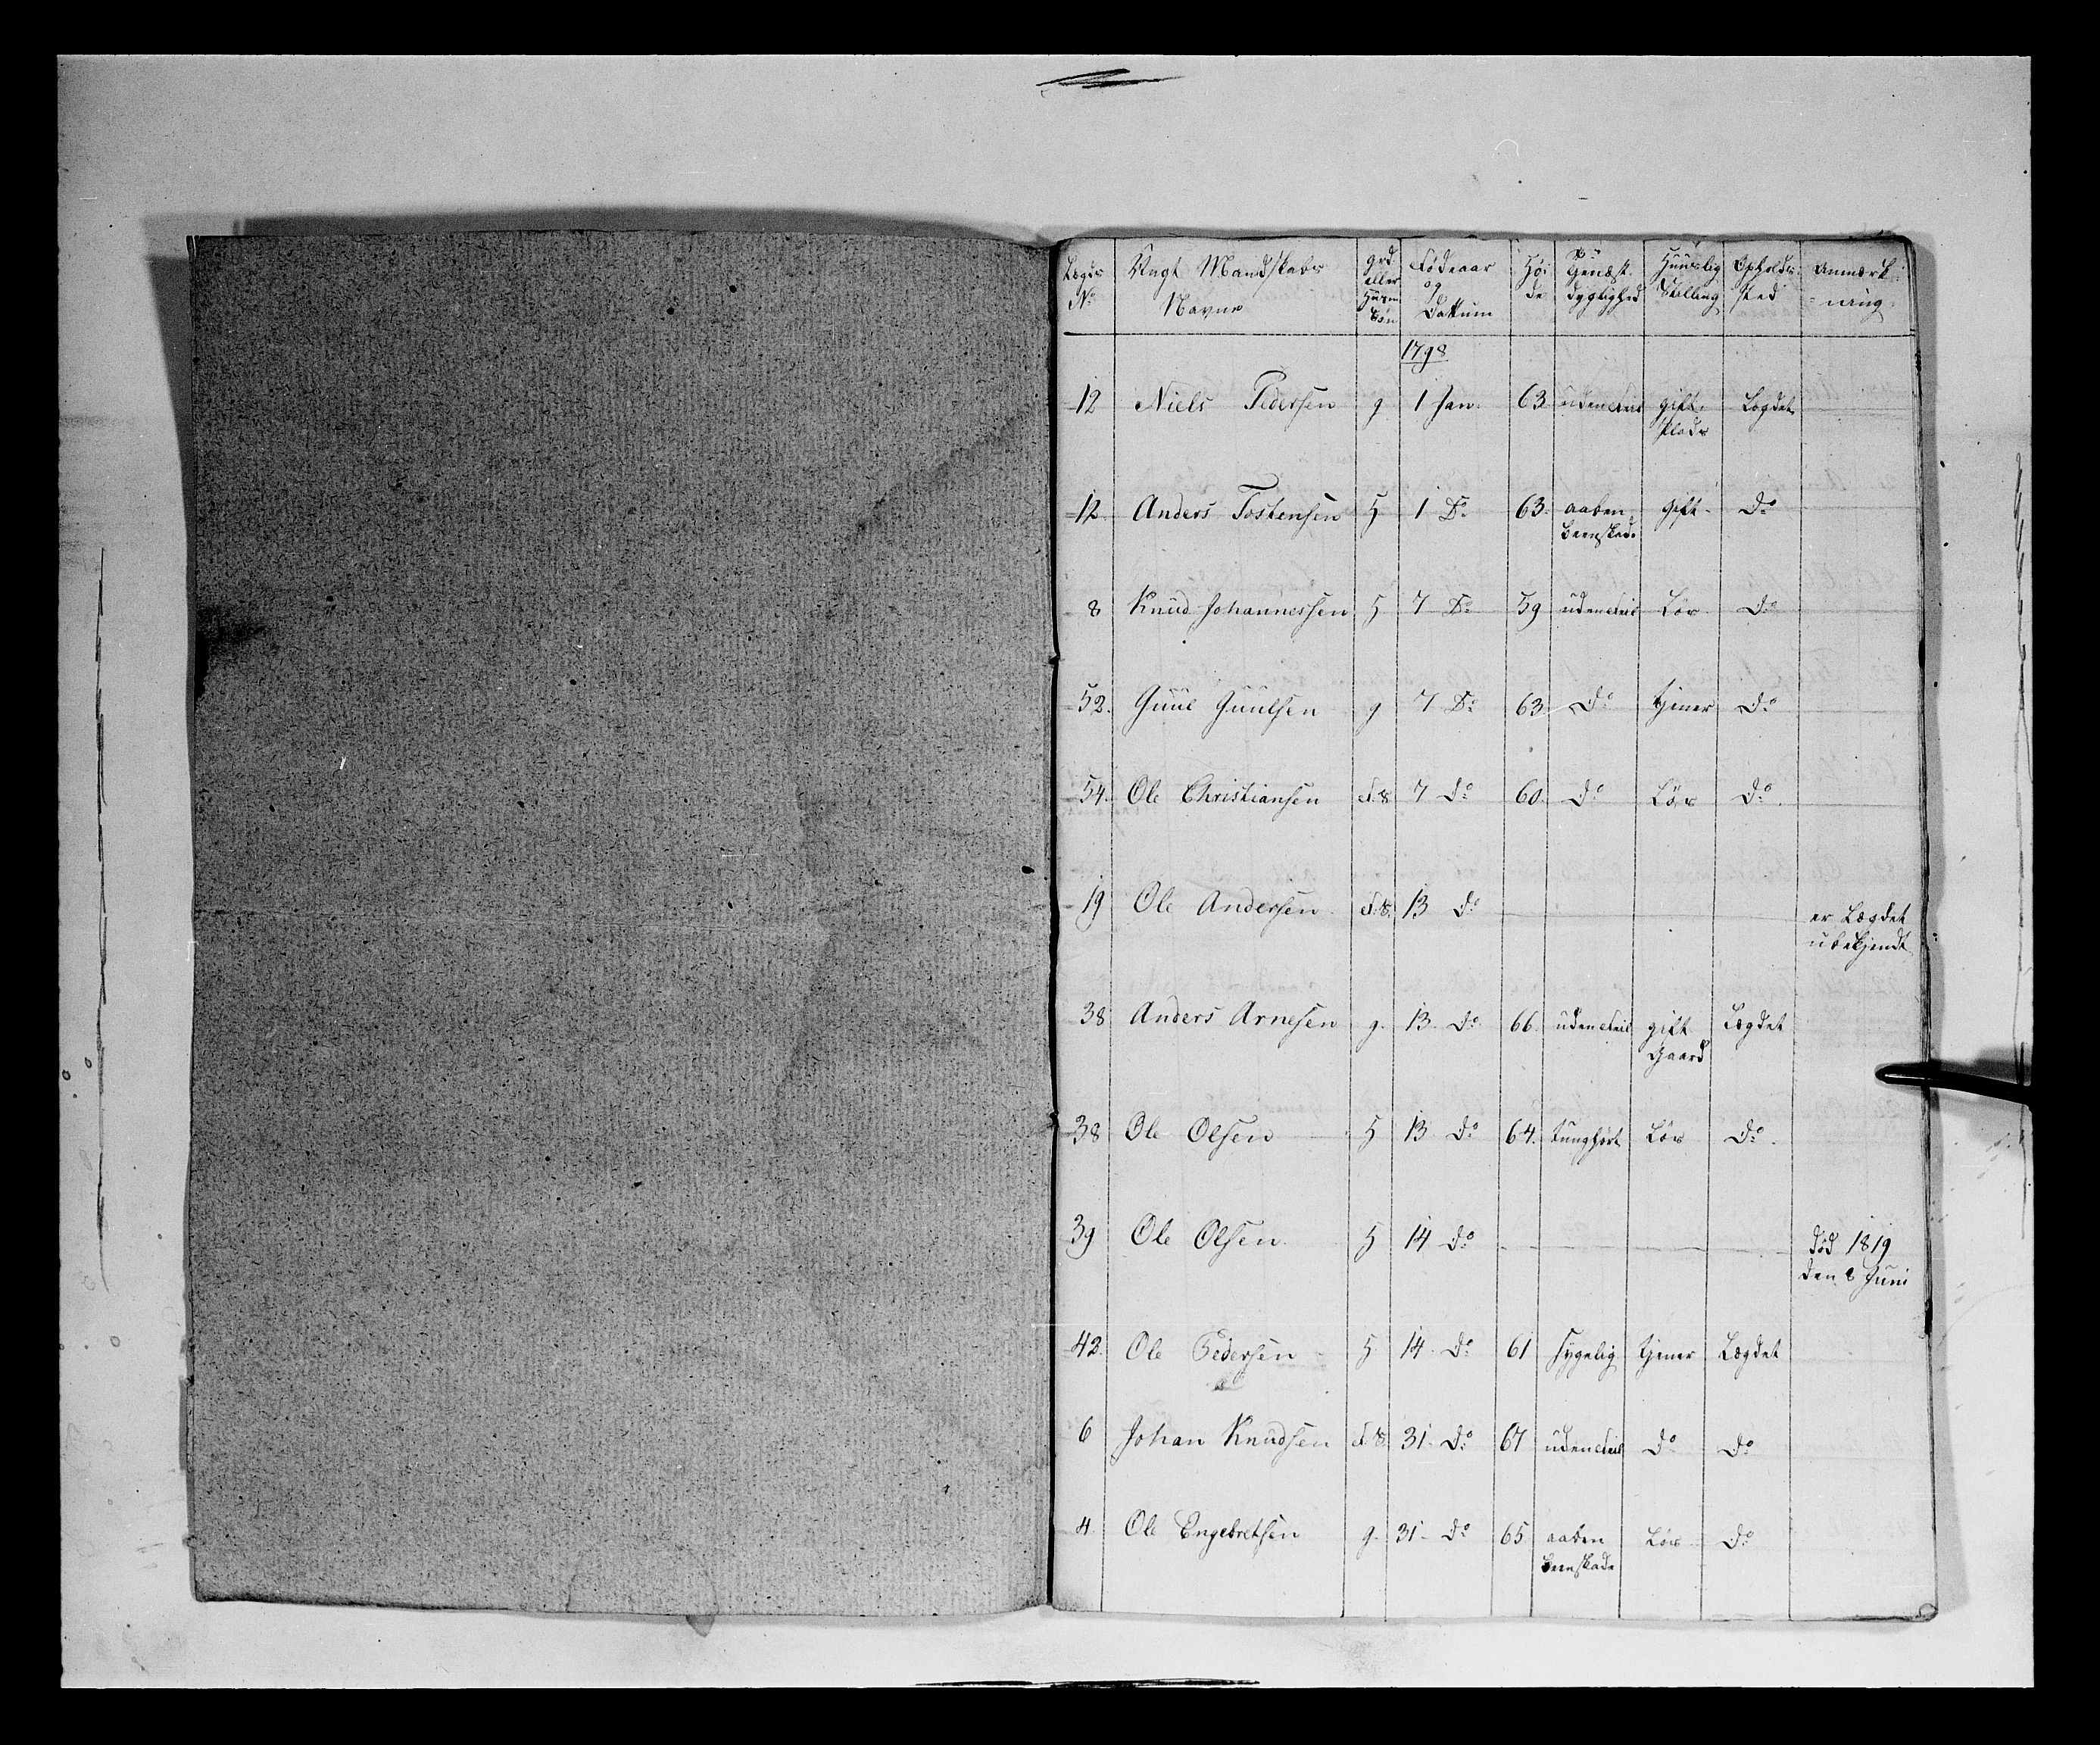 Lægds No | Ungt Mandskabs Navne | grd eller Huusm Søn | Fødeaar og Dattum | Høide | Tienestdygtighed | Huuslig Stilling | Opholds sted | Anmærkning
1798
12 Niels Pedersen g 1 Jan. 63 uden Feil gift. Lægdet
plads
12. Anders Tostensen H 1 Do 63. aaben gift. Do
beenskade
8 Knud Johannessen H 7 Do 59 uden Feil Løs Do
52. Guul Guulsen g 7 Do 63 Do tjener Do
54. Ole Christiansen F.S. 7 Do 60. Do Løs Do
19 Ole Andersen F.S. 13 Do er Lægdet
ubekjendt
38 Anders Arnesen g. 13. Do 66. uden Feil gift Lægdet
Gaard
38 Ole Olsen H 13 Do 64. tunghørt Løs Do
39 Ole Olsen H 14 Do død 1819
den 8 Juni
42. Ole Pedersen H 14. Do 61 sygelig tjener Lægdet
6 Johan Knudsen F.S. 31. Do 67 uden Feil Do Do
4. Ole Engebretsen g. 31. Do 65 aaben Løs Do
beenskade